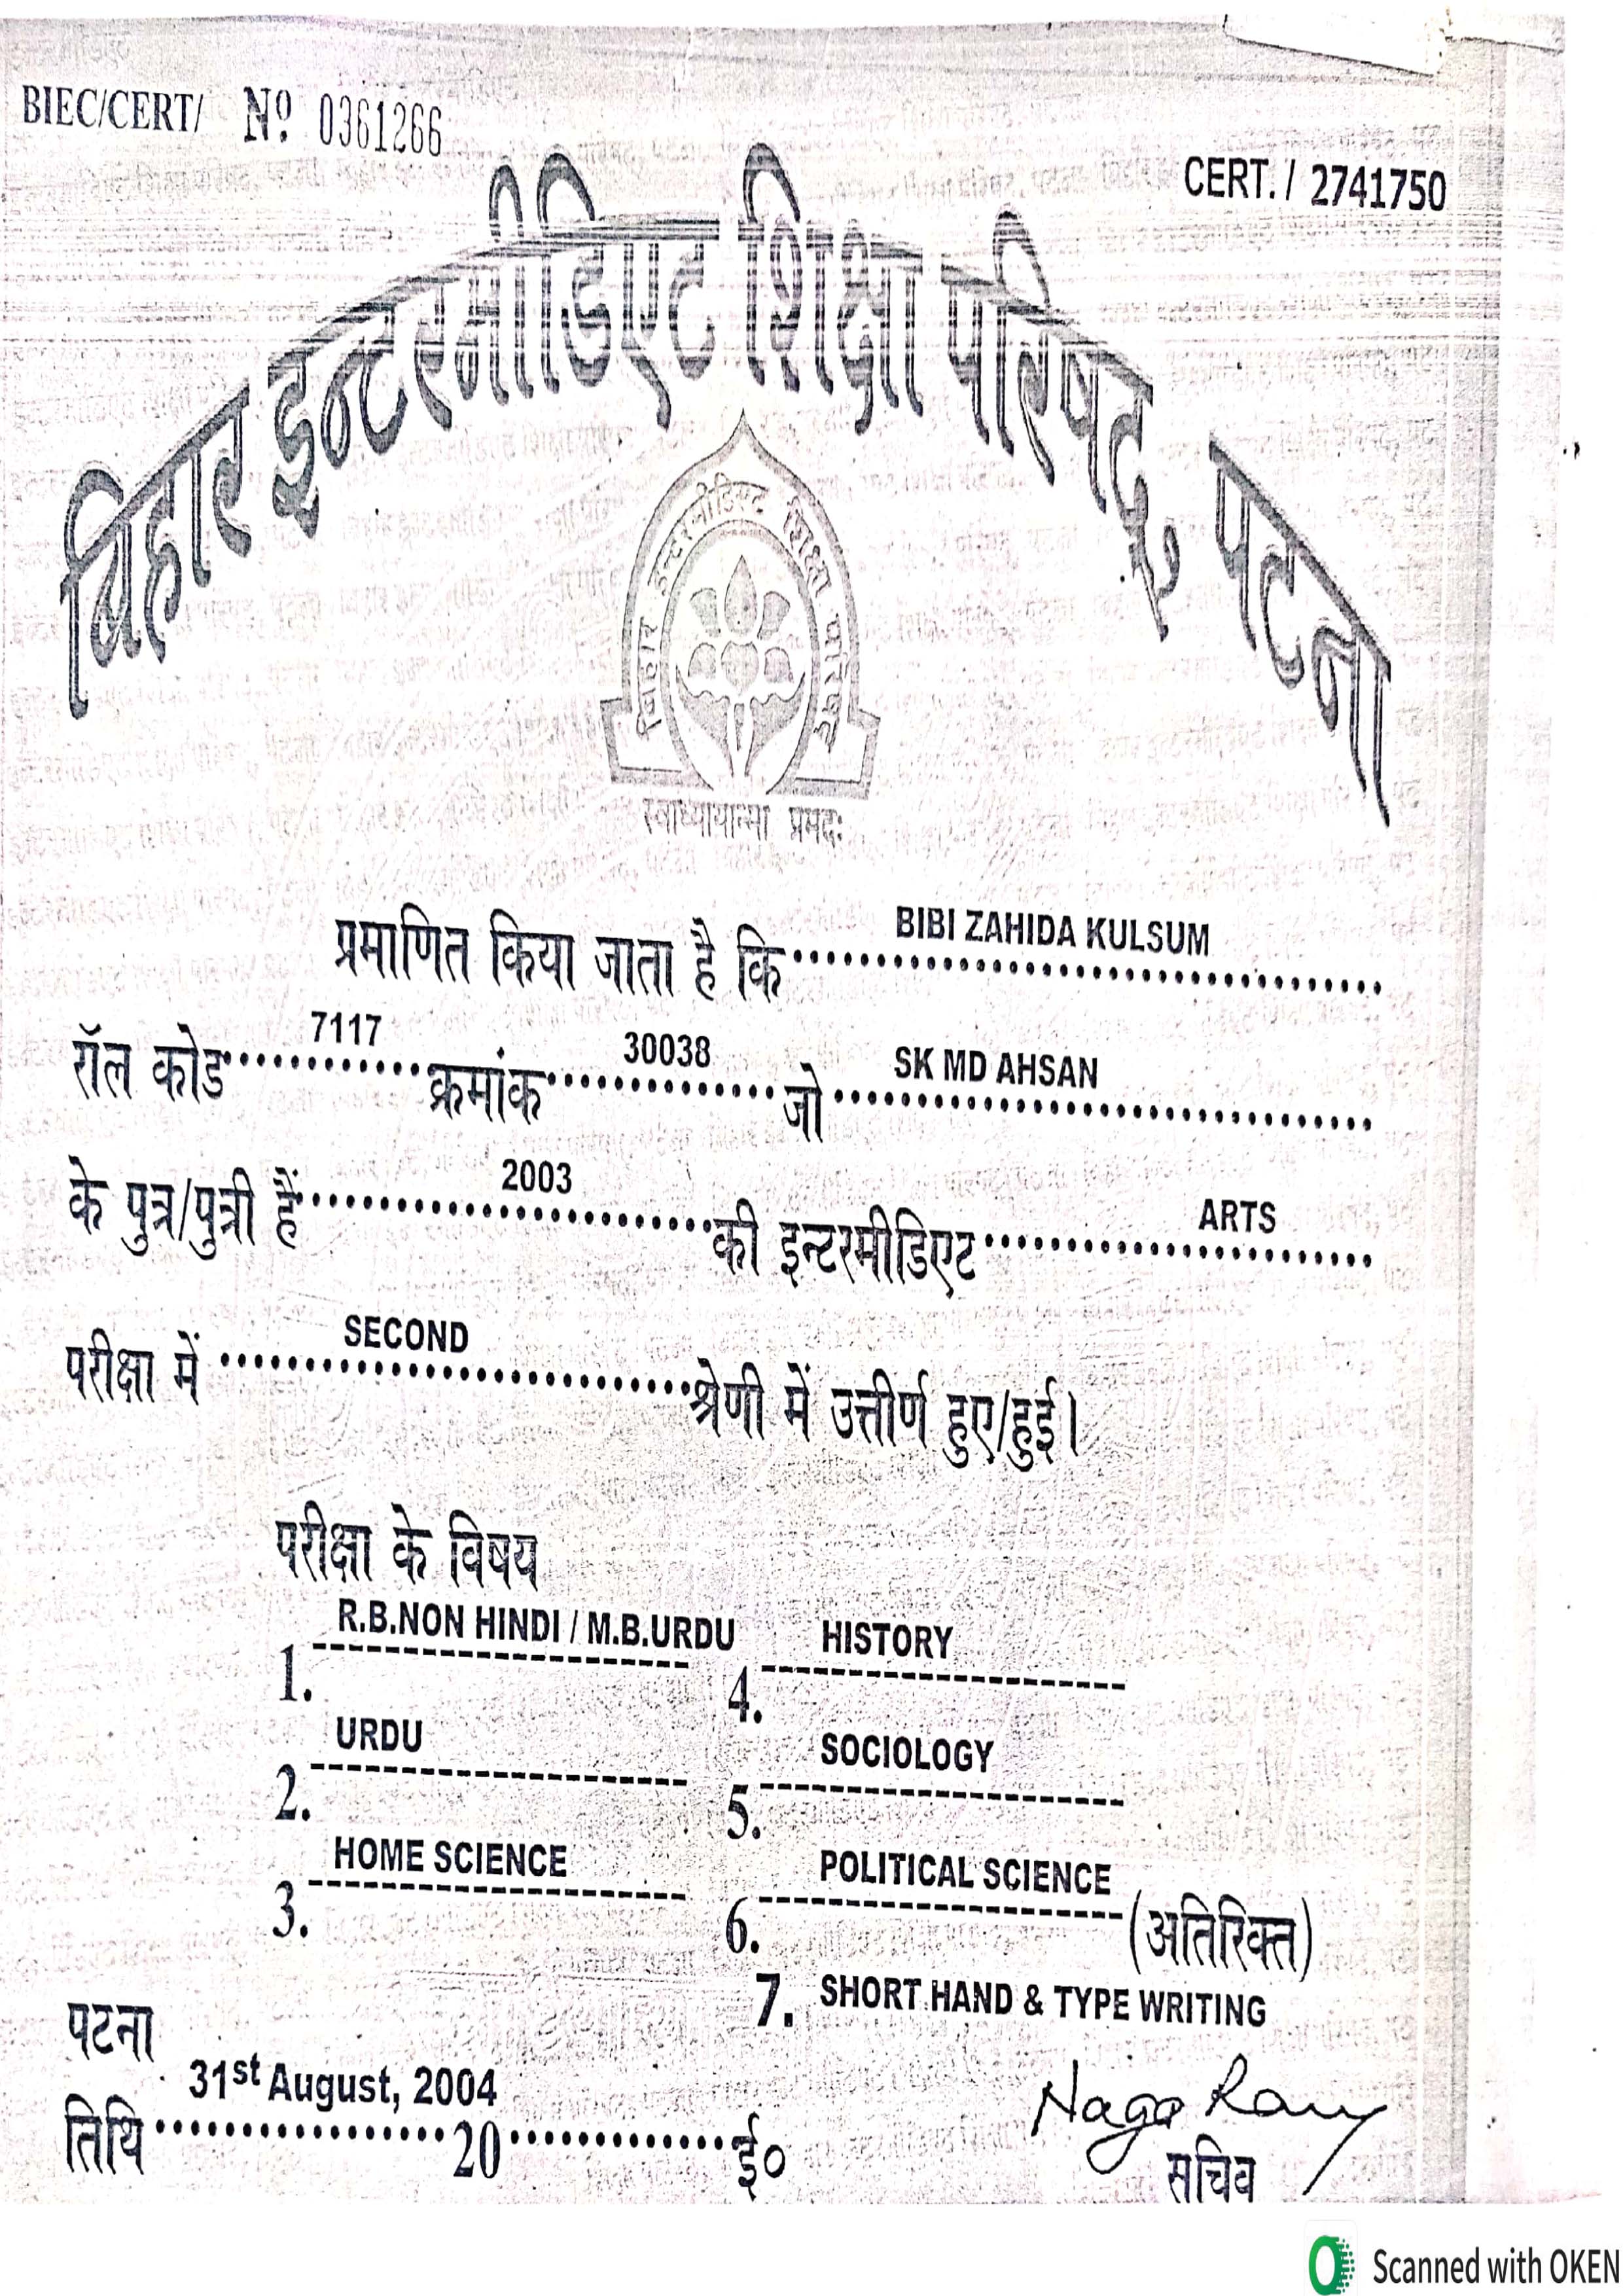 BIEC/CERT/ Nº 0361266
CERT. / 2741750
बिहार इन्टरमीडिएट शिक्षा परिषद्, पटना
बिहार इन्टरमीडिएट शिक्षा परिषद्
स्वाध्यायान्मा प्रमदः
प्रमाणित किया जाता है कि BIBI ZAHIDA KULSUM
रॉल कोड 7117 क्रमांक 30038 जो SK MD AHSAN
के पुत्र/पुत्री हैं 2003 की इन्टरमीडिएट ARTS
परीक्षा में SECOND श्रेणी में उत्तीर्ण हुए/हुई।
परीक्षा के विषय
1. R.B.NON HINDI / M.B.URDU 4. HISTORY
2. URDU 5. SOCIOLOGY
3. HOME SCIENCE 6. POLITICAL SCIENCE (अतिरिक्त)
7. SHORT HAND & TYPE WRITING
पटना
31st August, 2004
तिथि 20 ई०
सचिव
Scanned with OKEN